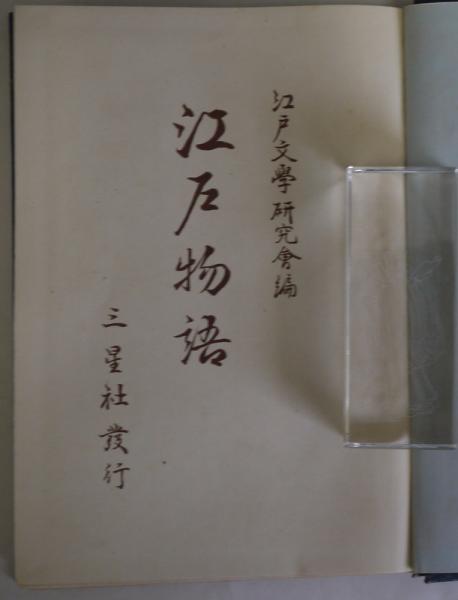 江戸文學研究會編
江戸物語
三星社發行